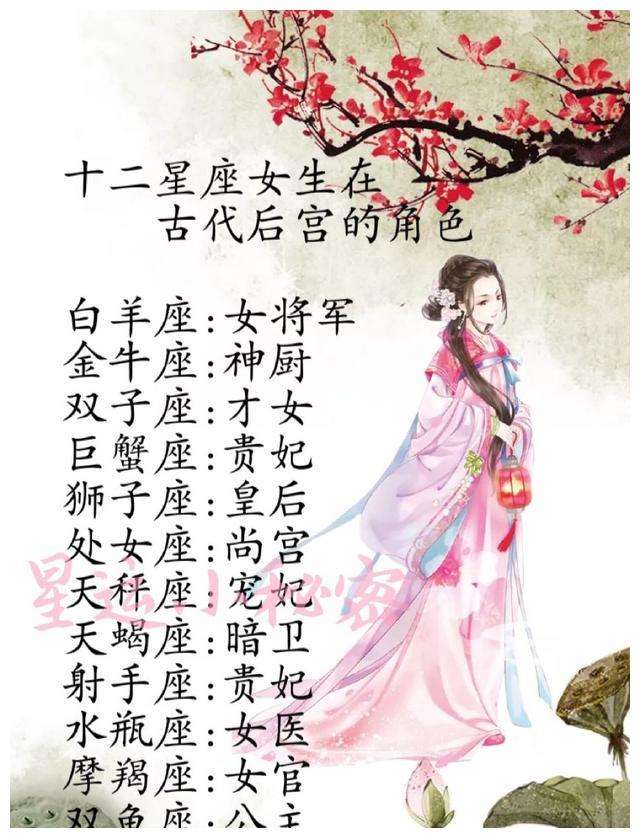 十二星座女生在
古代后宫的角色
白羊座:女将军
金牛座:神厨
双子座:才女
巨蟹座:贵妃
狮子座:皇后
处女座:尚宫
天秤座:宠妃
天蝎座:暗卫
射手座:贵妃
水瓶座:女医
摩羯座:女官
双鱼座:公主
星运小秘密